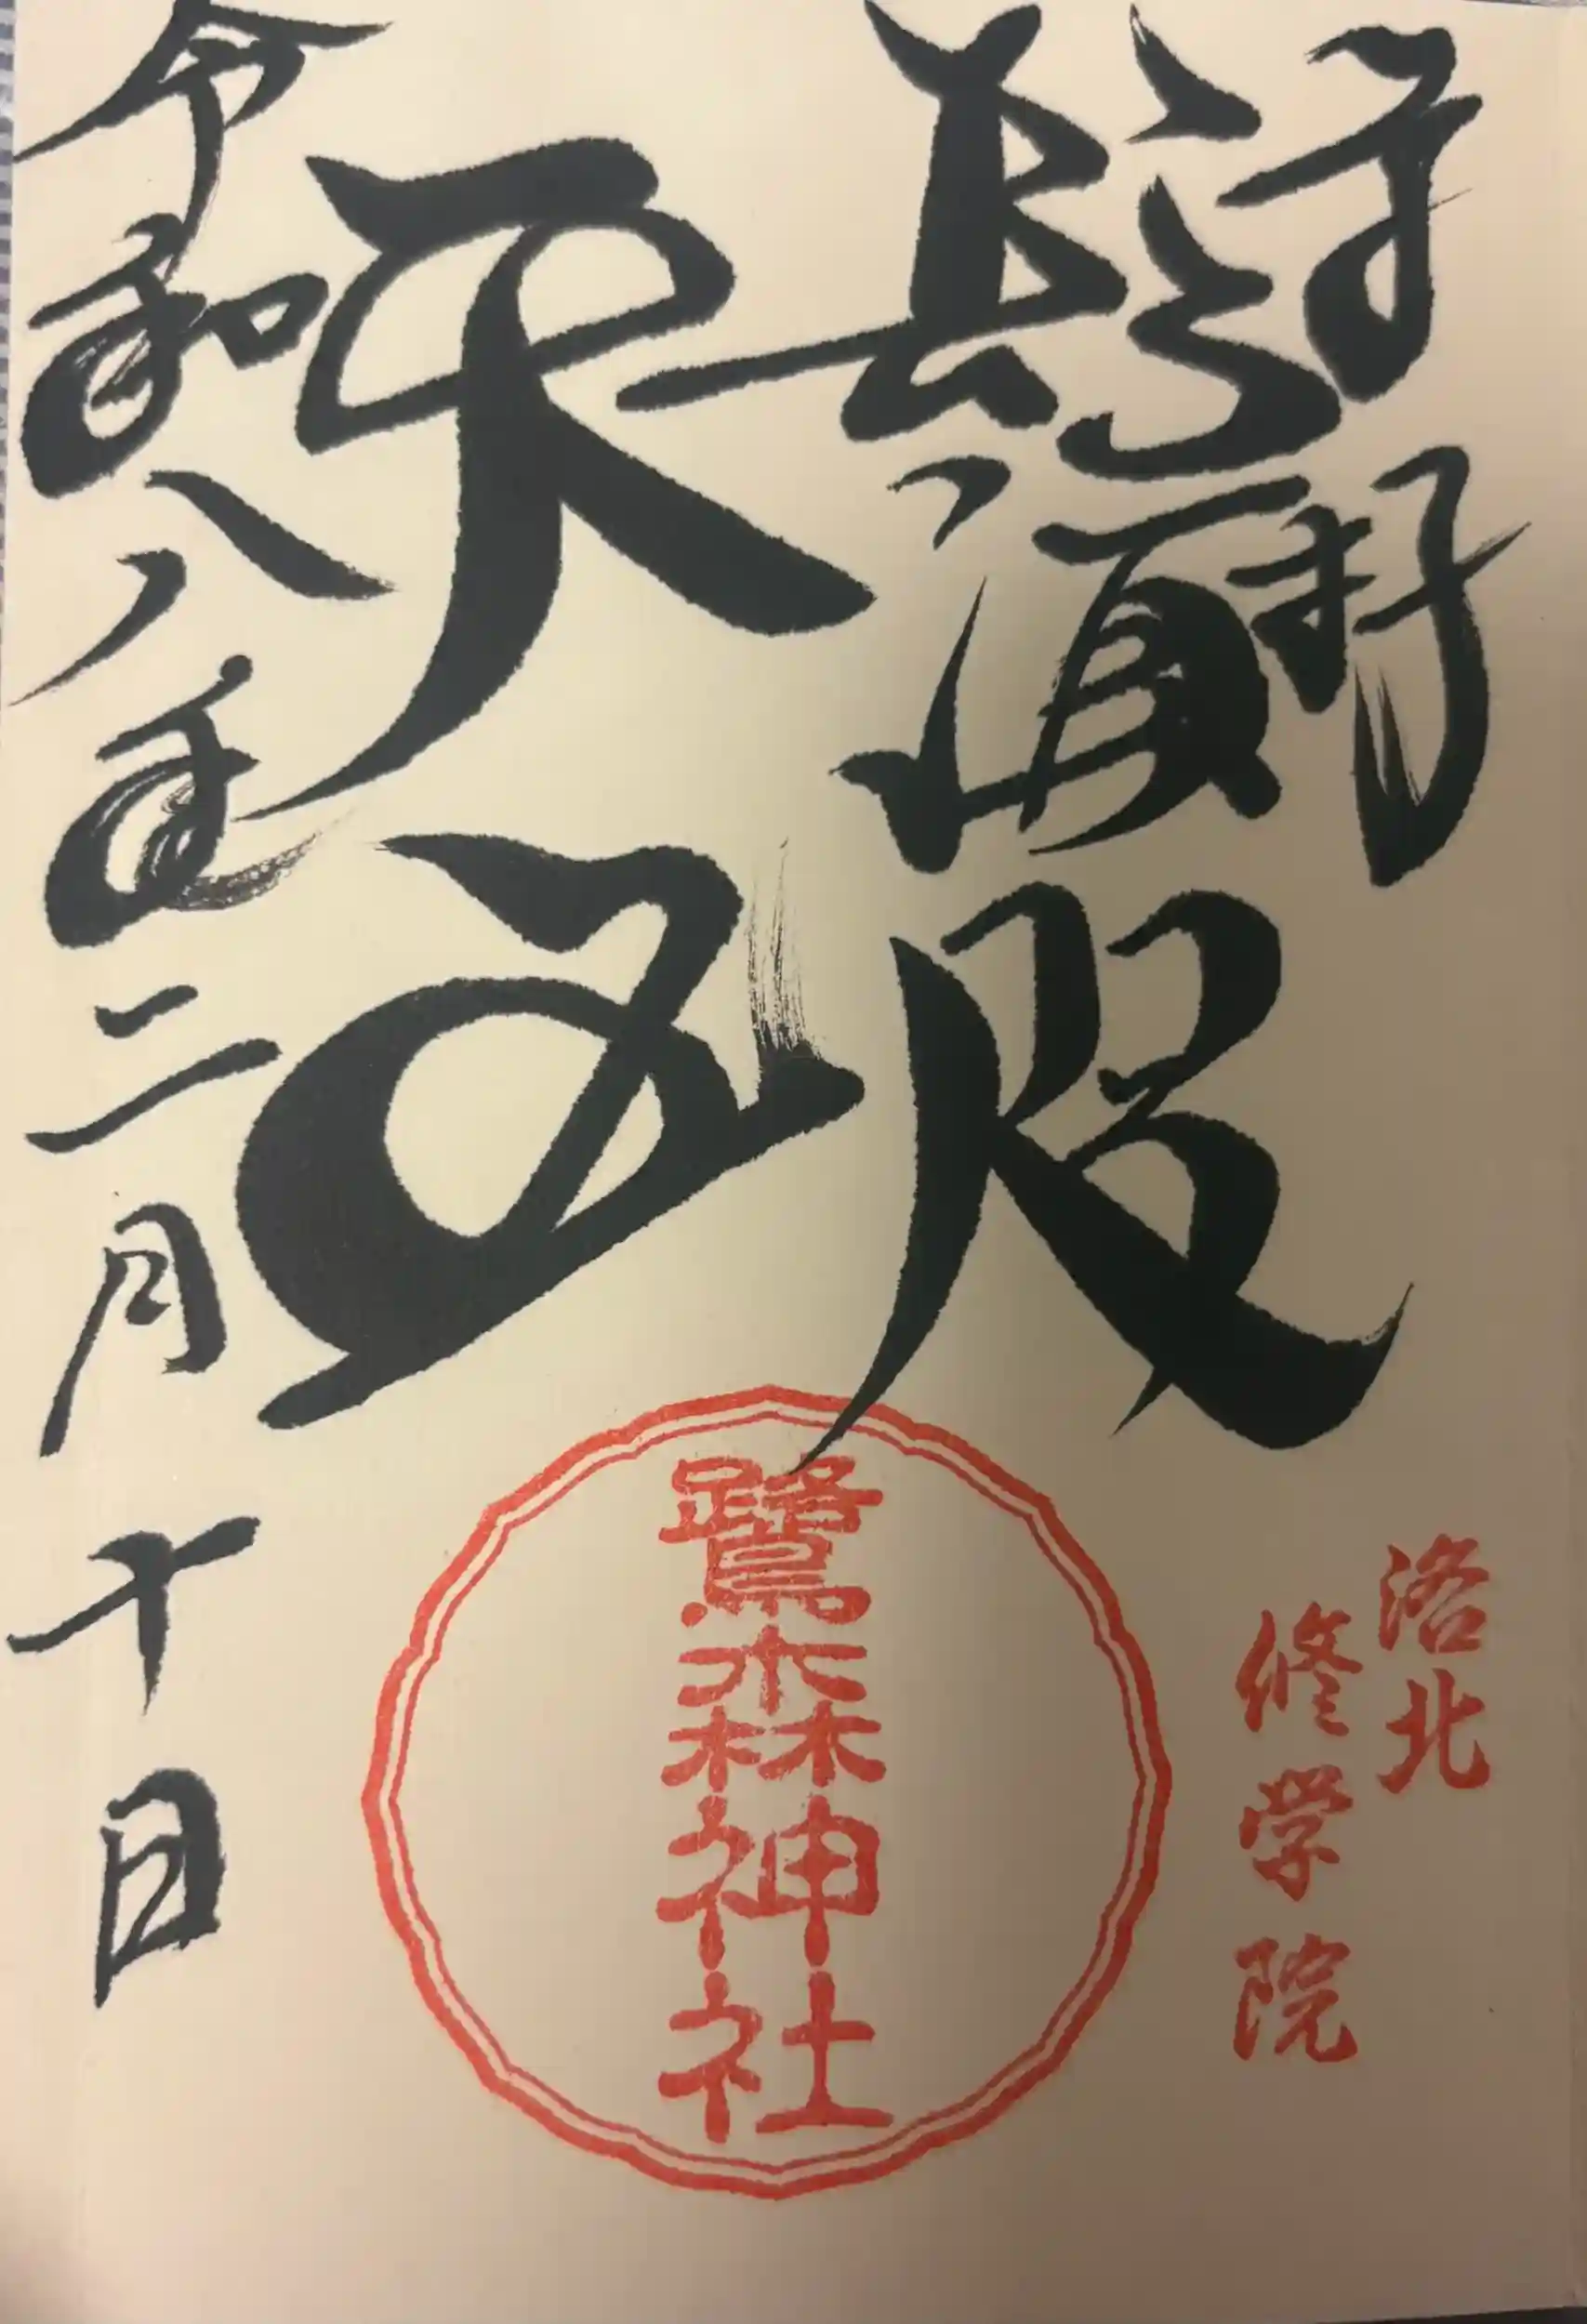 奉拝
鬚咫
天王
令和八年二月十日
洛北
修学院
鷺森神社